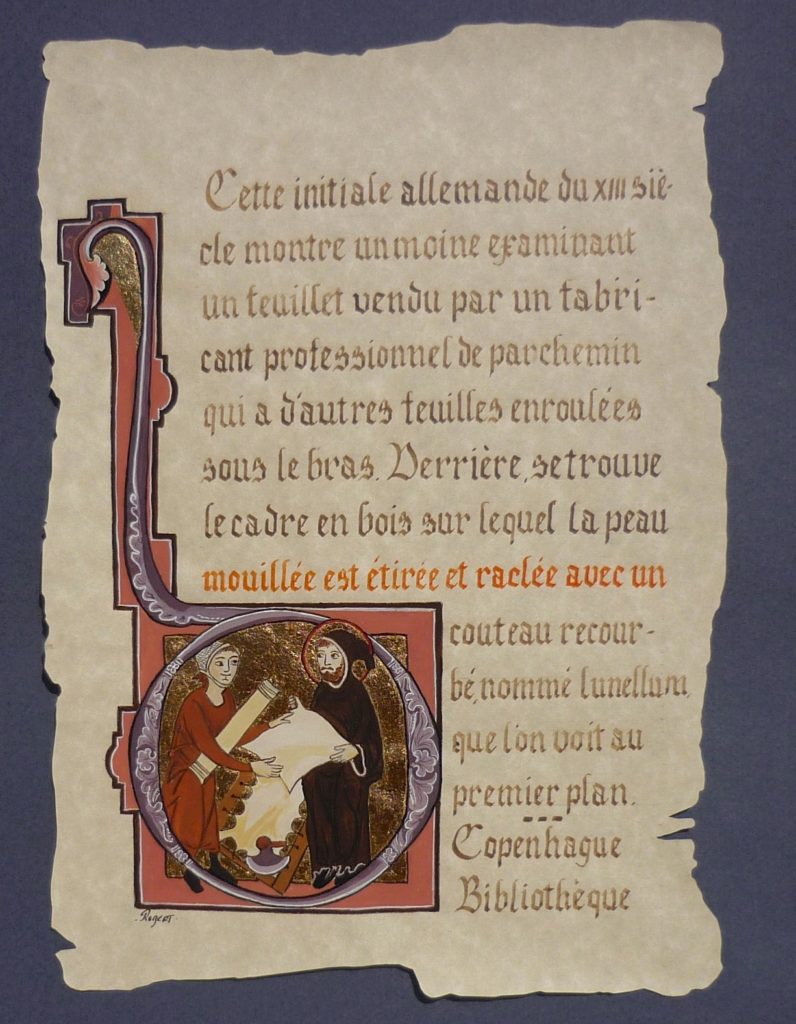 Cette initiale allemande du XIII siè-
cle montre un moine examinant
un feuillet vendu par un fabri-
cant professionnel de parchemin
qui a d'autres feuilles enroulées
sous le bras. Derrière, se trouve
le cadre en bois sur lequel la peau
mouillée est étirée et raclée avec un
couteau recour-
bé, nommé lunellum,
que l'on voit au
premier plan.
Copenhague
Bibliothèque